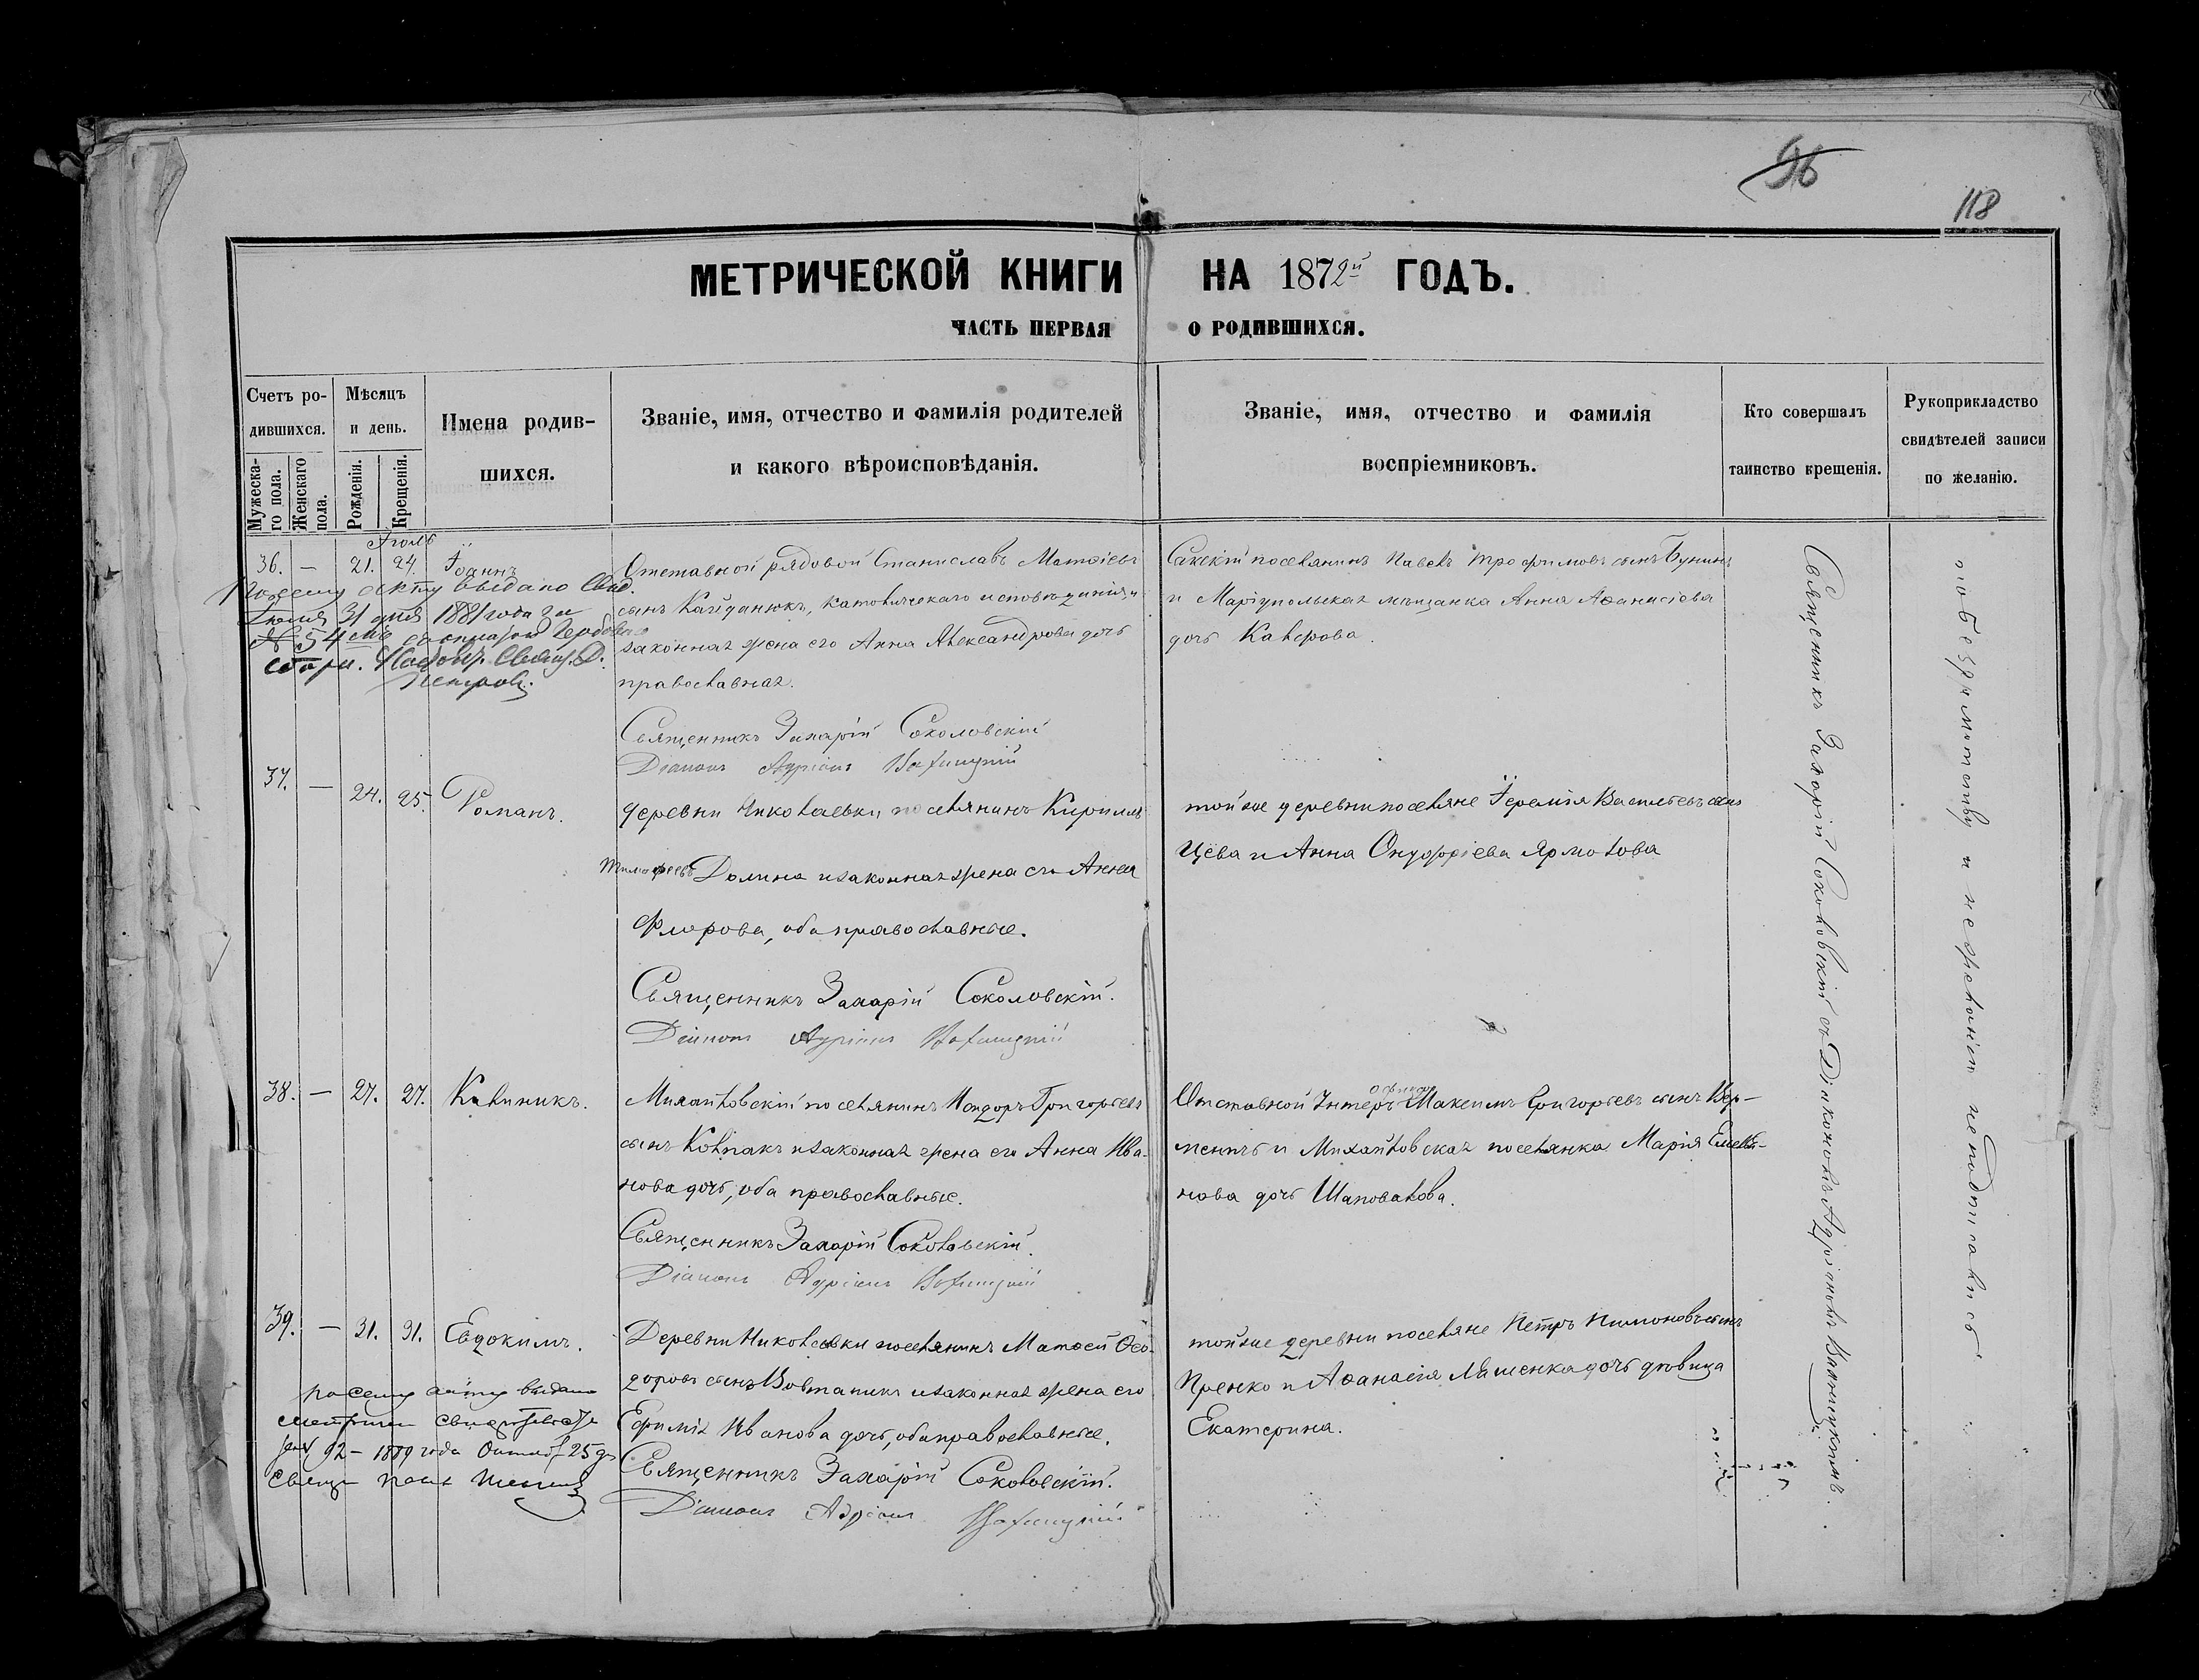 96
118
МЕТРИЧЕСКОЙ КНИГИ НА 1872й ГОДЪ.
ЧАСТЬ ПЕРВАЯ О РОДИВШИХСЯ.
Счетъ ро-
дившихся.
Мужеска-
го пола.
Женскаго
пола.
Мѣсяцъ
и день.
Рожденія.
Крещенія.
Имена родив-
шихся.
Званіе, имя, отчество и фамилія родителей
и какого вѣроисповѣданія.
Званіе, имя, отчество и фамилія
воспріемниковъ.
Кто совершалъ
таинство крещенія.
Рукоприкладство
свидѣтелей записи
по желанію.
36. — 21. 24. Іоаннъ
По сему акту выдано Свид.
31 дня 1881 года за
№ 54
Свящ.
Отставной рядовой Станиславъ Матѳіевъ
сынъ Кайданюкъ, католическаго исповѣданія и
законная жена его Анна Александрова дочь
православная.
Священникъ Захарій Соколовскій
Діаконъ Адріанъ
Сакскій поселянинъ Павелъ Трофимовъ сынъ Бунинъ
и Маріупольская мѣщанка Анна Аѳанасіева
дочь Каперова.
37. — 24. 25. Романъ.
деревни Николаевки поселянинъ Кириллъ
Тимофеевъ Долина и законная жена его Анна
Флорова, оба православные.
Священникъ Захарій Соколовскій.
Діаконъ Адріанъ
той же деревни поселяне Іеремія Васильевъ сынъ
Цѣва и Анна Онуфріева Ярмолова
38. — 27. 27. Калиникъ.
Михайловскій поселянинъ Исидоръ Григорьевъ
сынъ Колпакъ и законная жена его Анна Ива-
нова дочь, оба православные.
Священникъ Захарій Соколовскій.
Діаконъ Адріанъ
Отставной Унтеръ офицеръ Максимъ Григорьевъ сынъ
и Михайловская поселянка Марія Емелья-
нова дочь Шаповалова.
39. — 31. 31. Евдокимъ.
По сему акту выдано
92 — 1889 года 25 д.
Деревни Николаевки поселянинъ Матѳей Ѳео-
доровъ сынъ и законная жена его
Ефимія Иванова дочь, оба православные.
Священникъ Захарій Соколовскій.
Діаконъ Адріанъ
той же деревни поселяне Петръ Пимоновъ сынъ
и Аѳанасія Ляшенка дочь дѣвица
Екатерина.
Священникъ Захарій Соколовскій съ Діакономъ Адріаномъ
по безграмотству и нежеланію неподписались